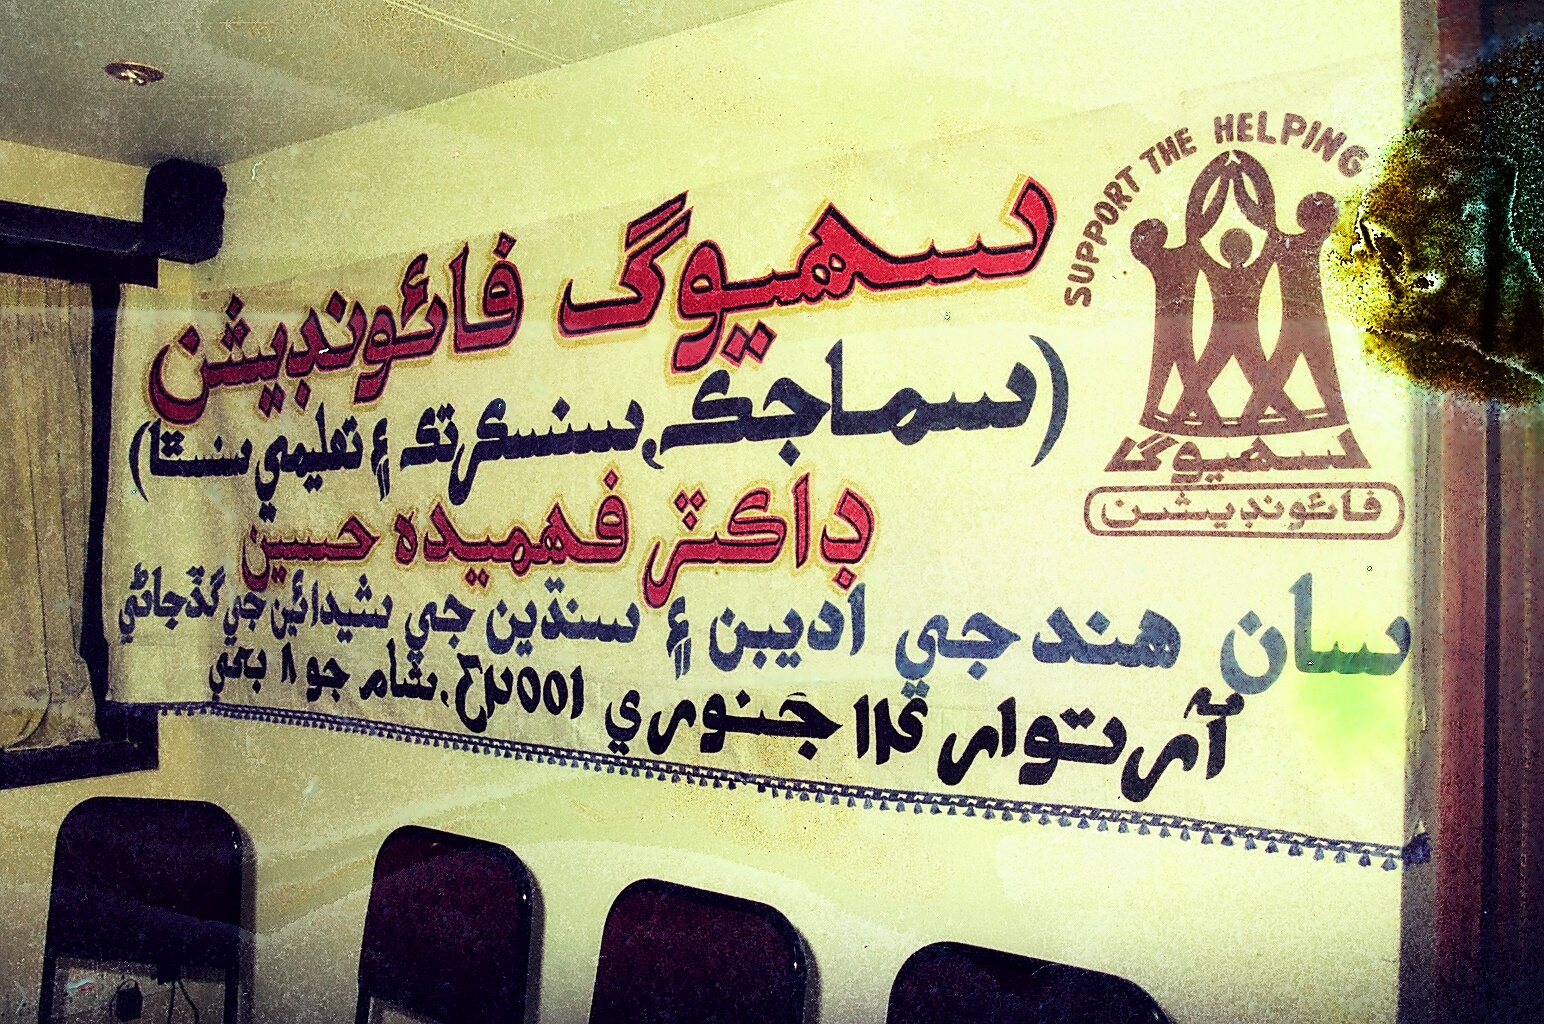 سهيوگ فائونڊيشن
(سماجڪ، سنسڪرتڪ ۽ تعليمي سنسٿا)
ڊاڪٽر فهميده حسين
سان هند جي اديبن ۽ سنڌين جي شيدائين جي گڏجاڻي
آرتوار ۱۴ جنوري ۲۰۰۱ع، شام جو ۸ بجي
SUPPORT THE HELPING
سهيوگ
فائونڊيشن